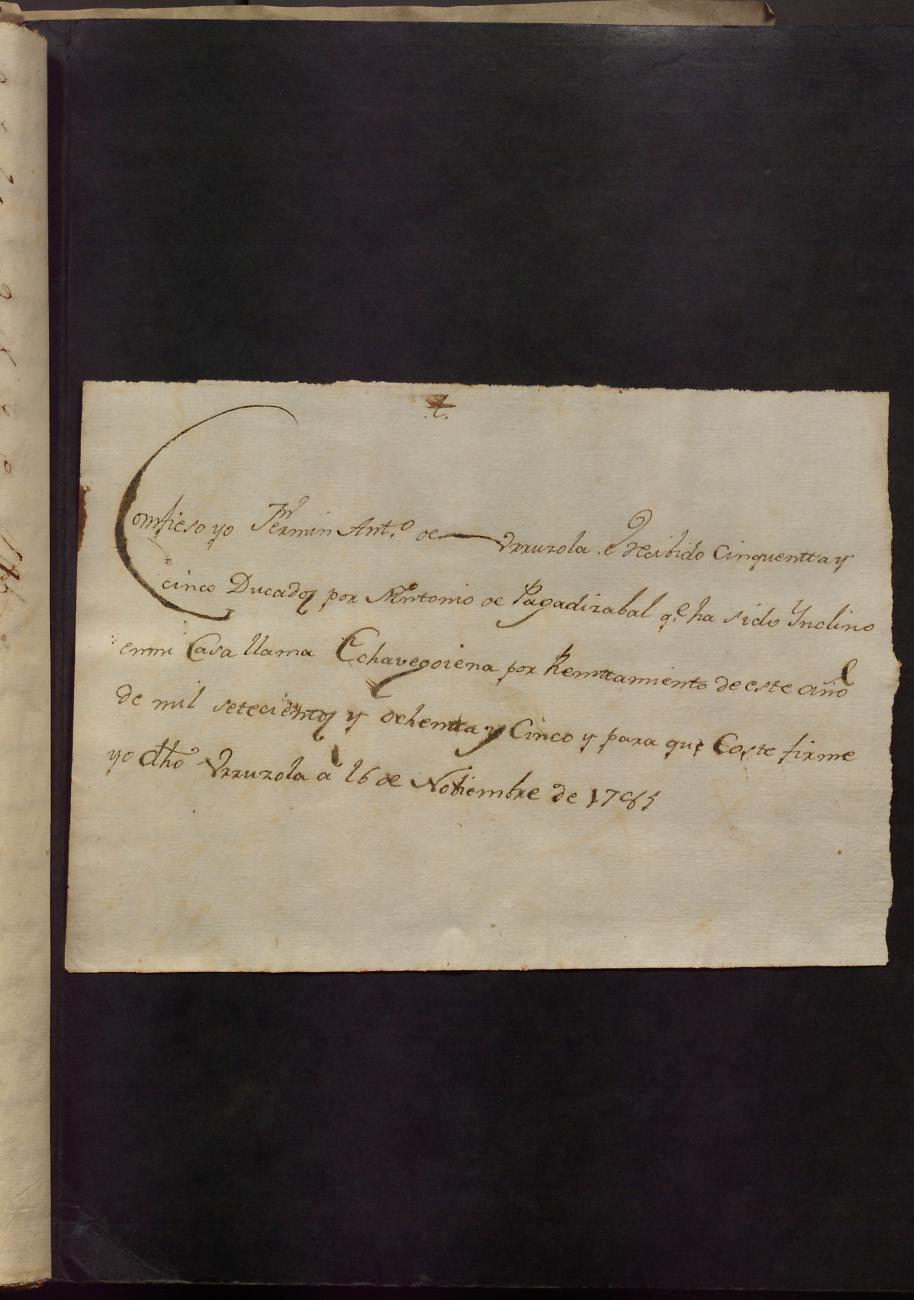 Comfieso yo Fermin Ant.º de Vrruzola é Recibido Cinquentta y
cinco Ducados por Antonio de Pagadizabal q.e ha sido Ynclino
enmi Casa llama Echavegoiena por Remttamiento de este año
de mil setecientos y ochentta y Cinco y para que Coste firme
yo dho Vrruzola a 16 de Nobiembre de 1785